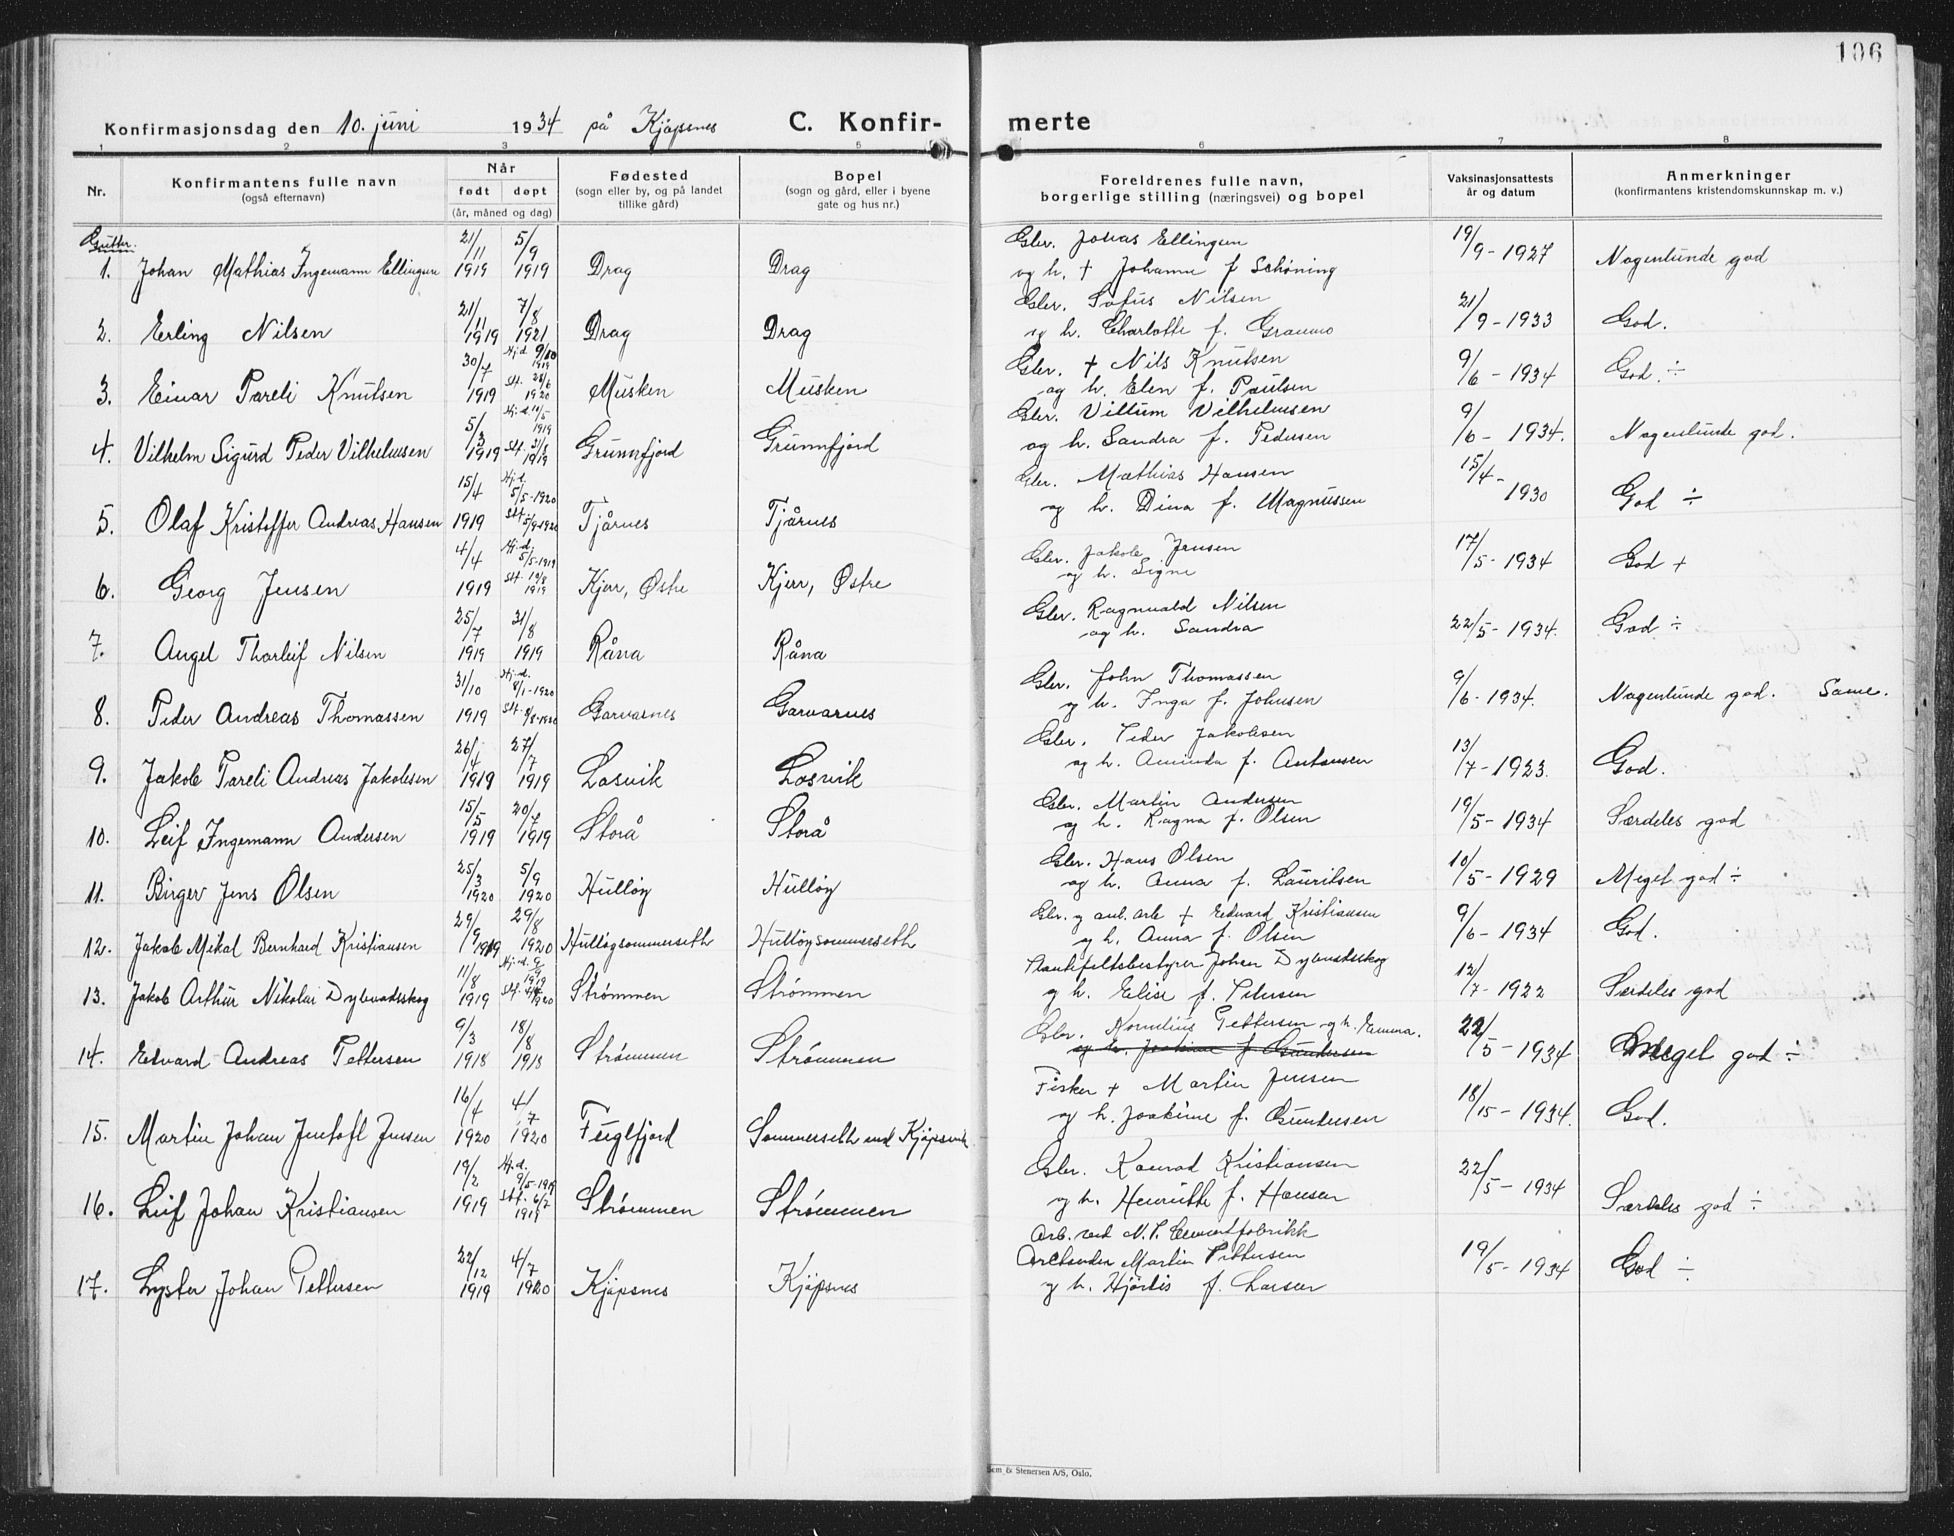 106
Konfirmasjonsdag den 10. juni 1934 på Kjøpsnes C. Konfir- merte
1 2 3 5 6 7 8
Nr. Konfirmantens fulle navn (også efternavn) Når født døpt (år, måned og dag) Fødested (sogn eller by, og på landet tillike gård) Bopel (sogn og gård, eller i byene gate og hus nr.) Foreldrenes fulle navn, borgerlige stilling (næringsvei) og bopel Vaksinasjonsattests år og datum Anmerkninger (konfirmantens kristendomskunnskap m. v.)
Gutter.
1. Johan Mathias Ingemann Ellingsen 21/11 1919 5/9 1919 Drag Drag Gbr. Jonas Ellingsen og h. + Johanna f. Schøning 19/9-1927 Nogenlunde god
2. Erling Nilsen 21/11 1919 7/8 1921 Drag Drag Gbr. Sofus Nilsen og h. Charlotte f. Granmo 21/9-1933 God.
3. Einar Pareli Knutsen 30/7 1919 Hj.d. 9/10 1919 Stf. 28/6 1920 Musken Musken Gbr. + Nils Knutsen og h. Elen f. Paulsen 9/6-1934 God. ÷
4. Vilhelm Sigurd Peder Vilhelmsen 5/3 1919 Hj.d. 11/5 1919 Stf. 31/8 1919 Grunnfjord Grunnfjord Gbr. Villum Vilhelmsen og h. Sandra f. Pedersen 9/6-1934. Nogenlunde god.
5. Olaf Kristoffer Andreas Hansen 15/4 1919 Hj.d. 5/5-1920 Stf. 5/9-1920 Tjårnes Tjårnes Gbr. Mathias Hansen og h. Dina f. Magnussen 15/4-1930 God ÷
6. Georg Jensen 4/4 1919 Hj.d. 5/5-1919 Stf. 10/8 1919 Kjerr, Østre Kjerr, Østre Gbr. Jakob Jensen og h. Signe 17/5-1934 God +
7. Angel Thorleif Nilsen 25/7 1919 31/8 1919 Råna Råna Gbr. Ragnvald Nilsen og h. Sandra 22/5-1934. God ÷
8. Peder Andreas Thomassen 31/10 1919 Hj.d. 8/1-1920 Stf. 8/8-1920 Garvarnes Garvarnes Gbr. John Thomassen og h. Inga f. Johnsen 9/6-1934. Nogenlunde god. Same.
9. Jakob Pareli Andreas Jakobsen 26/4 1919 27/7 1919 Losvik Losvik Gbr. Peder Jakobsen og h. Aminda f. Antonsen 13/7-1923. God.
10. Leif Ingemann Andersen 15/5 1919 20/7 1919 Storå Storå Gbr. Martin Andersen og h. Ragna f. Olsen 19/5-1934 Særdeles god
11. Birger Jens Olsen 25/3 1920 5/9 1920 Hulløy Hulløy Gbr. Hans Olsen og h. Anna f. Lauritsen 10/5-1929 Meget god ÷
12. Jakob Mikal Bernhard Kristiansen 29/9 1919 29/8 1920 Hulløysommerseth Hulløysommerseth Gbr. og anl. arb. + Edvard Kristiansen og h. Anna f. Olsen 9/6-1934 God.
13. Jakob Arthur Nikolai Dybvadskog 11/8 1919 Hj.d. 1919 Stf. 1920 Strømmen Strømmen Plantefeltsbestyrer Johan Dybvadskog og h. Elise f. Petersen 12/7-1922 Særdeles god
14. Edvard Andreas Pettersen 9/3 1918 18/8 1918 Strømmen Strømmen Gbr. Kornelius Pettersen og h. Emma. og h. Joakime f. Gundersen 22/5-1934 Meget god ÷
15. Martin Johan Jentoft Jensen 16/4 1920 4/7 1920 Fuglfjord Sommerseth ved Kjøpsvik Fisker + Martin Jensen og h. Joakime f. Gundersen 18/15-1934. God.
16. Leif Johan Kristiansen 19/2 1919 Hj.d. 9/5-1919 Stf. 6/7 1919 Strømmen Strømmen Gbr. Konrad Kristiansen og h. Henritte f. Hansen 22/5-1934 Særdeles god ÷
17. Lyster Johan Pettersen 22/12 1919 4/7 1920 Kjøpsnes Kjøpsnes Arb. ved N. P. Cementfabrikk Arbeider Martin Pettersen og h. Hjørdis f. Larsen 19/5-1934 God ÷
Sem & Stenersen A/S, Oslo.